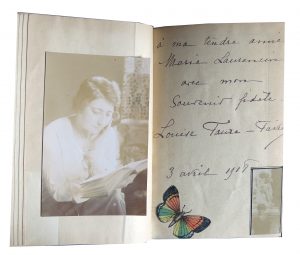 à ma tendre amie
Maria Laurencin
avec mon
Souvenir fidèle
Louise Faure-
3 avril 19